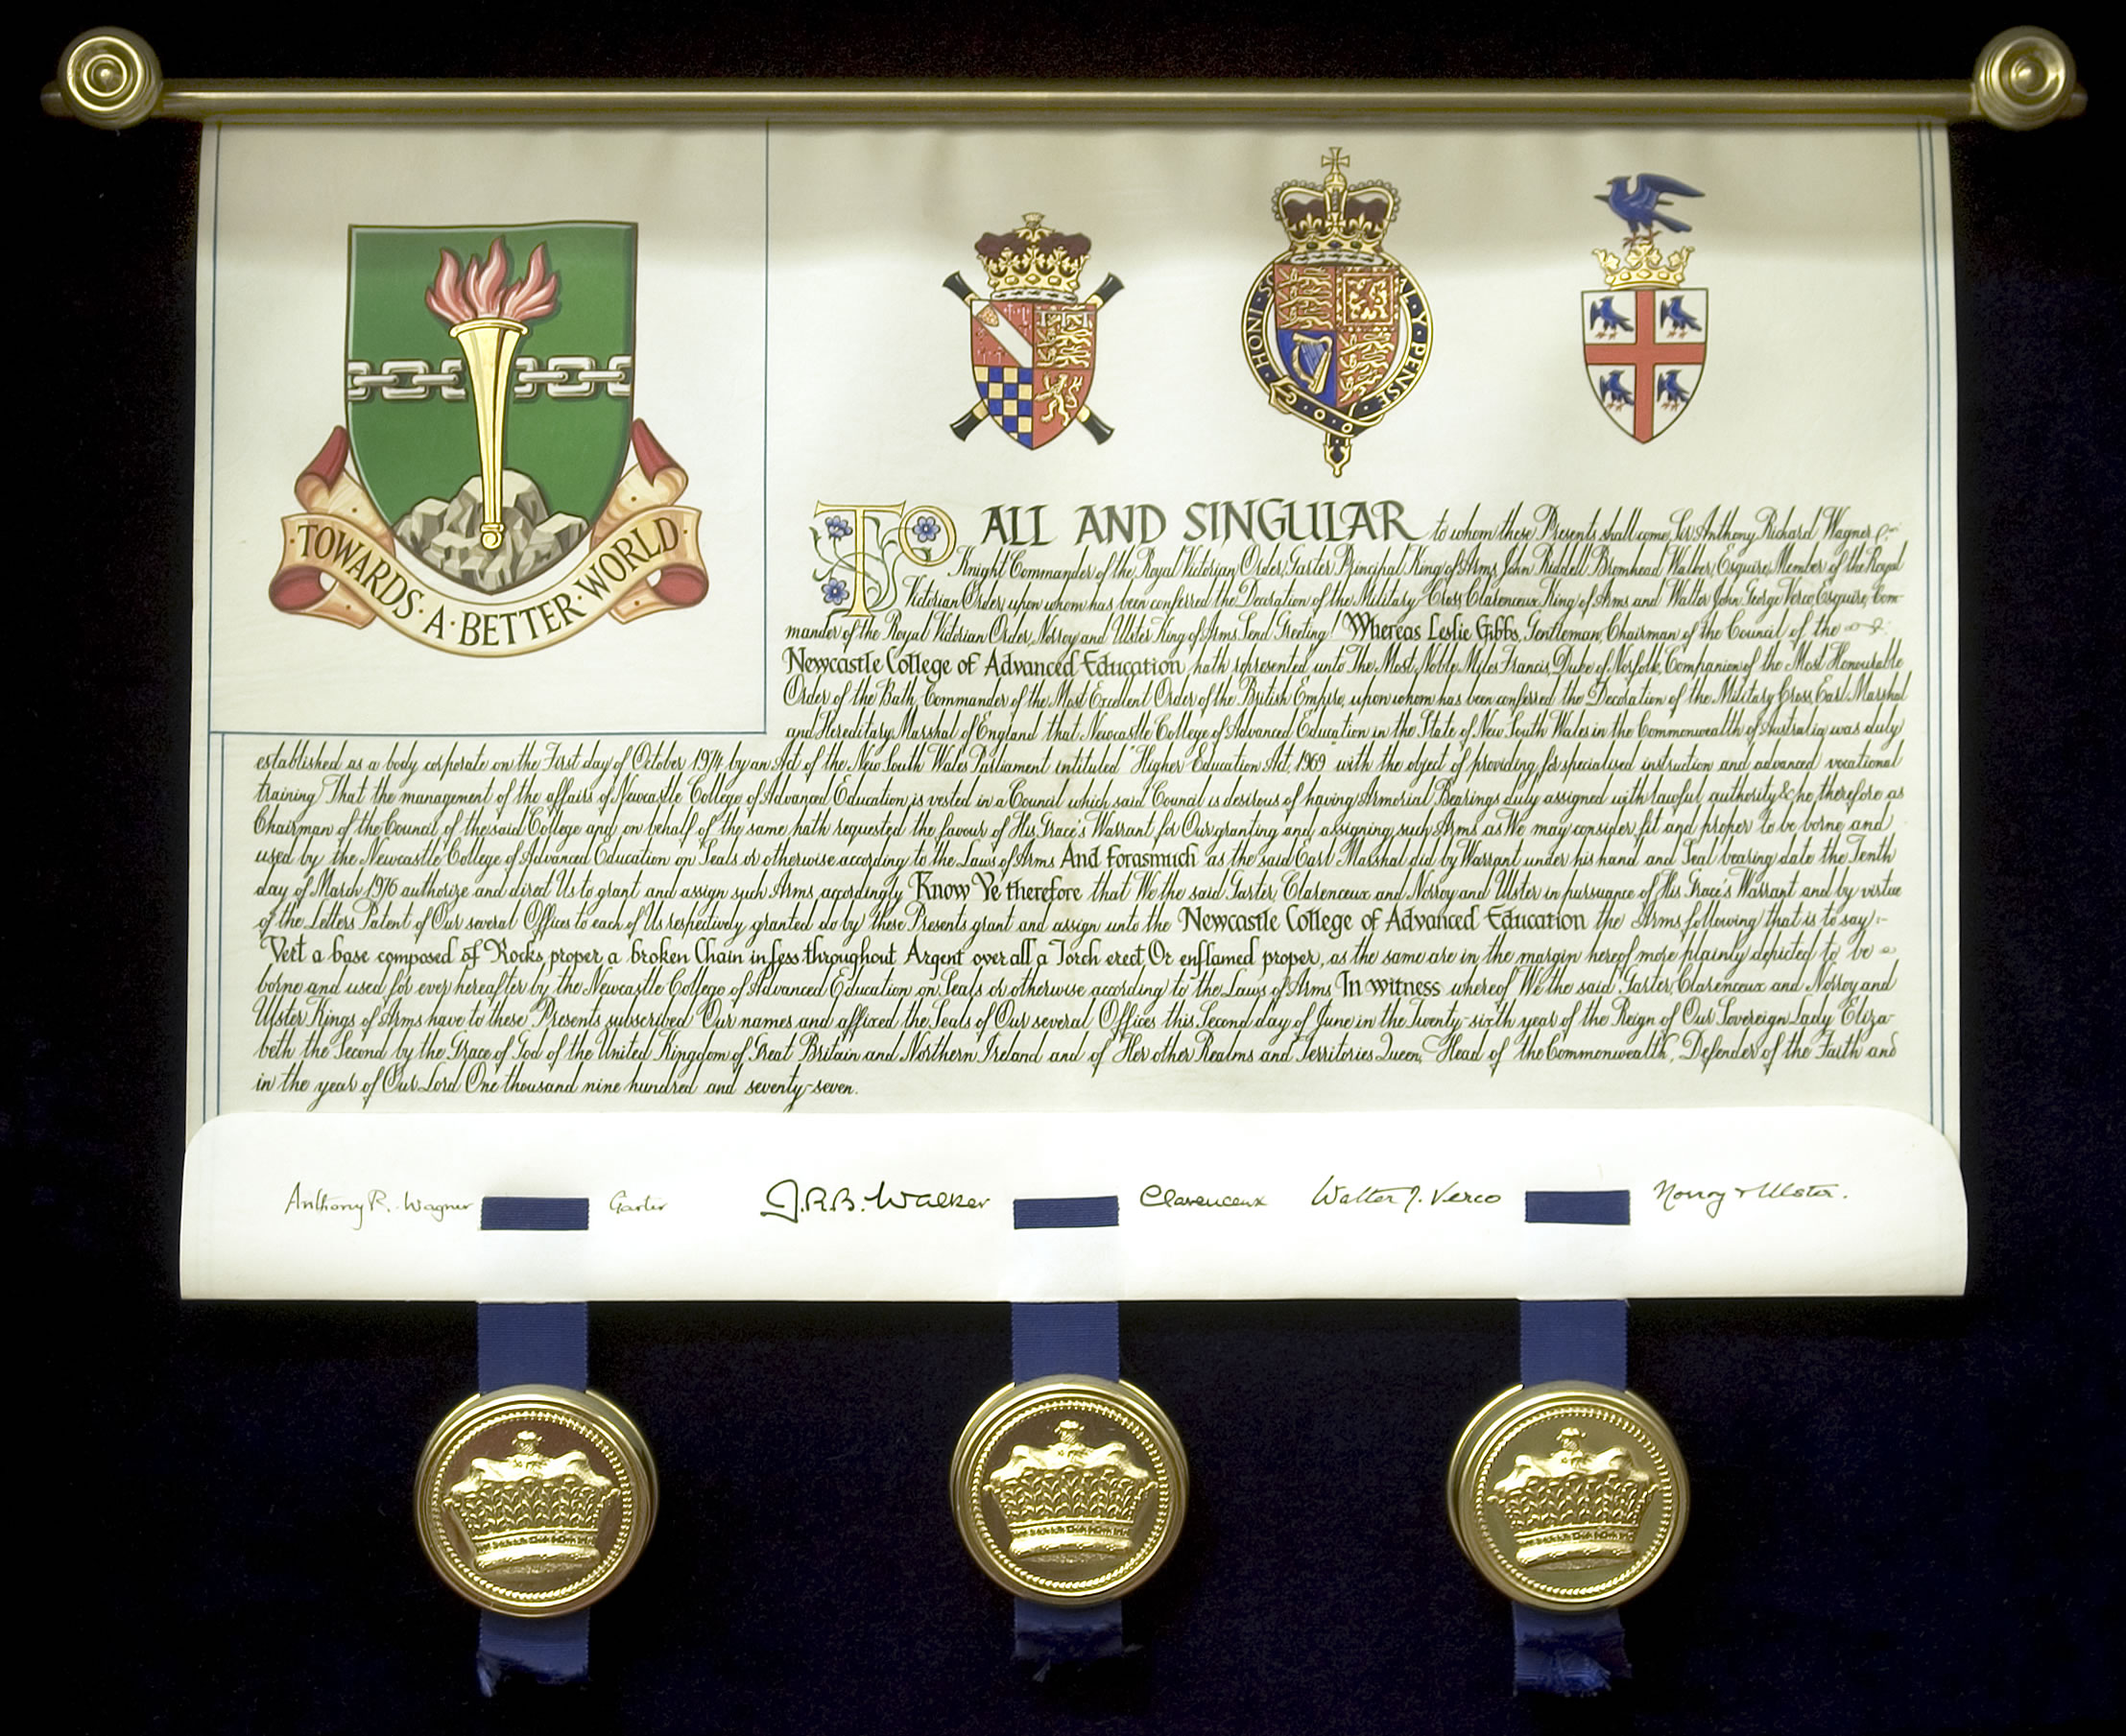 TOWARDS · A · BETTER · WORLD ·
HONI · SO
AL · Y · PENSE
TO ALL AND SINGULAR to whom these Presents shall come, Sir Anthony Richard Wagner
Knight Commander of the Royal Victorian Order, Garter Principal King of Arms, John Riddell Bromhead Walker, Esquire, Member of the Royal
Victorian Order, upon whom has been conferred the Decoration of the Military Cross, Clarenceux King of Arms and Walter John George Verco, Esquire, Com-
mander of the Royal Victorian Order, Norroy and Ulster King of Arms Send Greeting! Whereas Leslie Gibbs, Gentleman, Chairman of the Council of the
Newcastle College of Advanced Education, hath represented unto The Most Noble Miles Francis, Duke of Norfolk, Companion of the Most Honourable
Order of the Bath, Commander of the Most Excellent Order of the British Empire, upon whom has been conferred the Decoration of the Military Cross, Earl Marshal
and Hereditary Marshal of England that Newcastle College of Advanced Education in the State of New South Wales in the Commonwealth of Australia was duly
established as a body corporate on the First day of October 1974 by an Act of the New South Wales Parliament intituled "Higher Education Act, 1969" with the object of providing for specialised instruction and advanced vocational
training That the management of the affairs of Newcastle College of Advanced Education is vested in a Council which said Council is desirous of having Armorial Bearings duly assigned with lawful authority & he therefore as
Chairman of the Council of the said College and on behalf of the same hath requested the favour of His Grace's Warrant for Our granting and assigning such Arms as We may consider fit and proper to be borne and
used by the Newcastle College of Advanced Education on Seals or otherwise according to the Laws of Arms And forasmuch as the said Earl Marshal did by Warrant under his hand and Seal bearing date the Tenth
day of March 1976 authorize and direct Us to grant and assign such Arms accordingly Know Ye therefore that We the said Garter, Clarenceux and Norroy and Ulster in pursuance of His Grace's Warrant and by virtue
of the Letters Patent of Our several Offices to each of Us respectively granted do by these Presents grant and assign unto the Newcastle College of Advanced Education the Arms following that is to say:-
Vert a base composed of Rocks proper a broken Chain in fess throughout Argent over all a Torch erect Or enflamed proper, as the same are in the margin hereof more plainly depicted to be
borne and used for ever hereafter by the Newcastle College of Advanced Education on Seals or otherwise according to the Laws of Arms In witness whereof We the said Garter, Clarenceux and Norroy and
Ulster Kings of Arms have to these Presents subscribed Our names and affixed the Seals of Our several Offices this Second day of June in the Twenty-sixth year of the Reign of Our Sovereign Lady Eliza-
beth the Second by the Grace of God of the United Kingdom of Great Britain and Northern Ireland and of Her other Realms and Territories Queen, Head of the Commonwealth, Defender of the Faith and
in the year of Our Lord One thousand nine hundred and seventy-seven.
Anthony R. Wagner Garter J.R.B. Walker Clarenceux Walter J. Verco Norroy & Ulster.